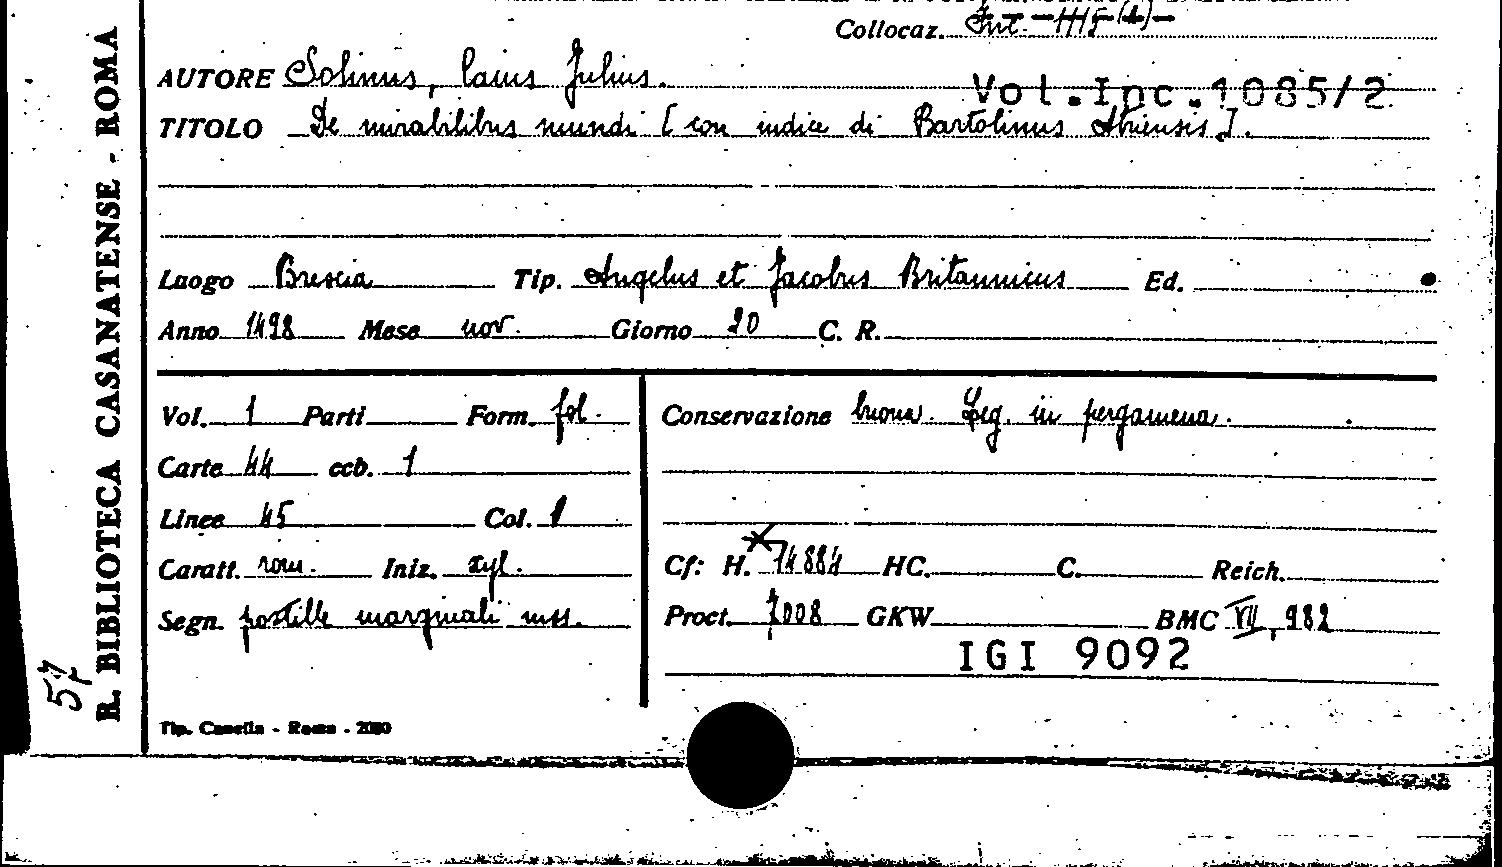 Collocaz. Inc. 1115 (2)
AUTORE Solinus, Caius Julius.
Vol.Inc.1085/2
TITOLO De mirabilibus mundi [con indice di Bartolinus Atriensis].
Luogo Brescia Tip. Angelus et Jacobus Britannicus Ed.
Anno 1498 Mese nov. Giorno 20 C. R.
Vol. 1 Parti Form. fol.
Carte 44 ccb. 1
Linee 45 Col. 1
Caratt. rom. Iniz. xyl.
Segn. postille marginali mss.
Conservazione buona. Leg. in pergamena.
Cf: H. 14884 HC. C. Reich.
Proct. 7008 GKW BMC VII, 982
IGI 9092
Tip. Canella - Roma - 2080
R. BIBLIOTECA CASANATENSE - ROMA
57